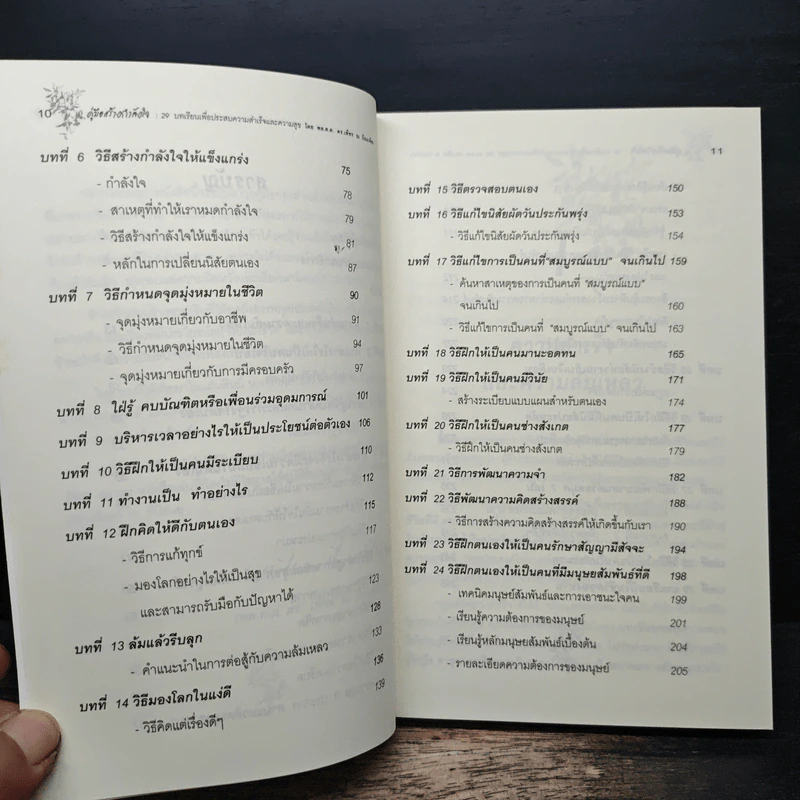 10 คู่มือสร้างกำลังใจ : 29 บทเรียนเพื่อประสบความสำเร็จและความสุข โดย
บทที่ 6 วิธีสร้างกำลังใจให้แข็งแกร่ง 75
- กำลังใจ 78
- สาเหตุที่ทำให้เราหมดกำลังใจ 79
- วิธีสร้างกำลังใจให้แข็งแกร่ง 81
- หลักในการเปลี่ยนนิสัยตนเอง 87
บทที่ 7 วิธีกำหนดจุดมุ่งหมายในชีวิต 90
- จุดมุ่งหมายเกี่ยวกับอาชีพ 91
- วิธีกำหนดจุดมุ่งหมายในชีวิต 94
- จุดมุ่งหมายเกี่ยวกับการมีครอบครัว 97
บทที่ 8 ใฝ่รู้ คบบัณฑิตหรือเพื่อนร่วมอุดมการณ์ 101
บทที่ 9 บริหารเวลาอย่างไรให้เป็นประโยชน์ต่อตัวเอง 106
บทที่ 10 วิธีฝึกให้เป็นคนมีระเบียบ 110
บทที่ 11 ทำงานเป็น ทำอย่างไร 112
บทที่ 12 ฝึกคิดให้ดีกับตนเอง 115
- วิธีการแก้ทุกข์ 117
- มองโลกอย่างไรให้เป็นสุข
และสามารถรับมือกับปัญหาได้ 123
บทที่ 13 ล้มแล้วรีบลุก 128
- คำแนะนำในการต่อสู้กับความล้มเหลว 133
บทที่ 14 วิธีมองโลกในแง่ดี 136
- วิธีคิดแต่เรื่องดีๆ 139
11
บทที่ 15 วิธีตรวจสอบตนเอง 150
บทที่ 16 วิธีแก้ไขนิสัยผัดวันประกันพรุ่ง 153
- วิธีแก้ไขนิสัยผัดวันประกันพรุ่ง 154
บทที่ 17 วิธีแก้ไขการเป็นคนที่"สมบูรณ์แบบ" จนเกินไป 159
- ค้นหาสาเหตุของการเป็นคนที่ "สมบูรณ์แบบ"
จนเกินไป 160
- วิธีแก้ไขการเป็นคนที่ "สมบูรณ์แบบ" จนเกินไป 163
บทที่ 18 วิธีฝึกให้เป็นคนมานะอดทน 165
บทที่ 19 วิธีฝึกให้เป็นคนมีวินัย 171
- สร้างระเบียบแบบแผนสำหรับตนเอง 174
บทที่ 20 วิธีฝึกให้เป็นคนช่างสังเกต 177
- วิธีฝึกให้เป็นคนช่างสังเกต 179
บทที่ 21 วิธีการพัฒนาความจำ 182
บทที่ 22 วิธีพัฒนาความคิดสร้างสรรค์ 188
- วิธีการสร้างความคิดสร้างสรรค์ให้เกิดขึ้นกับเรา 190
บทที่ 23 วิธีฝึกตนเองให้เป็นคนรักษาสัญญามีสัจจะ 194
บทที่ 24 วิธีฝึกตนเองให้เป็นคนที่มีมนุษยสัมพันธ์ที่ดี 198
- เทคนิคมนุษย์สัมพันธ์และการเอาชนะใจคน 199
- เรียนรู้ความต้องการของมนุษย์ 201
- เรียนรู้หลักมนุษยสัมพันธ์เบื้องต้น 204
- รายละเอียดความต้องการของมนุษย์ 205